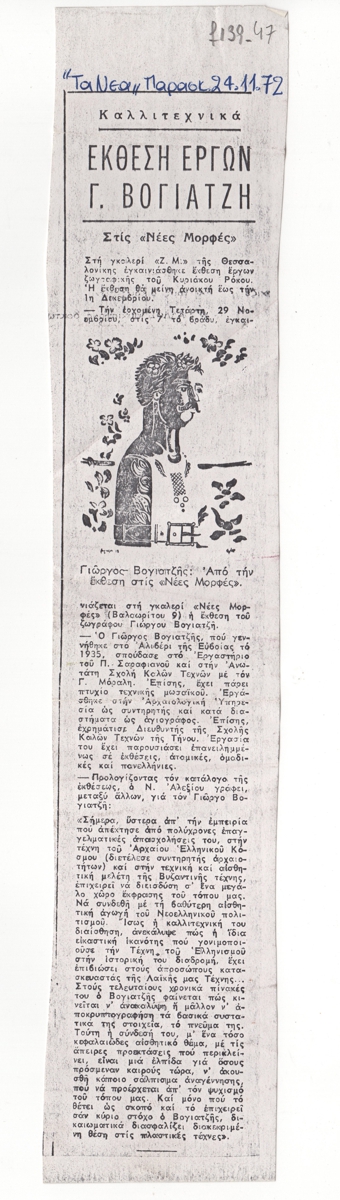 f139-47
"Τα Νεα,, Παρασκ. 24.11.72
Καλλιτεχνικά
ΕΚΘΕΣΗ ΕΡΓΩΝ
Γ. ΒΟΓΙΑΤΖΗ
Στίς «Νέες Μορφές»
Στή γκαλερί «Ζ.Μ.» τῆς Θεσσα-
λονίκης ἐγκαινιάσθηκε ἔκθεση ἔργων
ζωγραφικῆς τοῦ Κυριάκου Ρόκου.
Ἡ ἔκθεση θά μείνη ἀνοικτή ἕως τήν
1η Δεκεμβρίου.
— Τήν ἐρχομένη Τετάρτη, 29 Νο-
εμβρίου, στίς 7 τό βράδυ, ἐγκαι-
Γιῶργος Βογιατζῆς: Ἀπό τήν
ἔκθεση στίς «Νέες Μορφές».
νιάζεται στή γκαλερί «Νέες Μορ-
φές» (Βαλαωρίτου 9) ἡ ἔκθεση τοῦ
ζωγράφου Γιώργου Βογιατζῆ.
— Ὁ Γιῶργος Βογιατζῆς, πού γεν-
νήθηκε στό Ἀλιβέρι τῆς Εὐβοίας τό
1935, σπούδασε στό Ἐργαστήριο
τοῦ Π. Σαραφιανοῦ καί στήν Ἀνω-
τάτη Σχολή Καλῶν Τεχνῶν μέ τόν
Γ. Μόραλη. Ἐπίσης, ἔχει πάρει
πτυχίο τεχνικῆς μωσαϊκοῦ. Ἐργά-
σθηκε στήν Ἀρχαιολογική Ὑπηρε-
σία ὡς συντηρητής καί κατά δια-
στήματα ὡς ἁγιογράφος. Ἐπίσης,
ἐχρημάτισε Διευθυντής τῆς Σχολῆς
Καλῶν Τεχνῶν τῆς Τήνου. Ἐργασία
του ἔχει παρουσιάσει ἐπανειλημμέ-
νως σέ ἐκθέσεις, ἀτομικές, ὁμαδι-
κές καί πανελλήνιες.
— Προλογίζοντας τόν κατάλογο τῆς
ἐκθέσεως, ὁ Ν. Ἀλεξίου γράφει,
μεταξύ ἄλλων, γιά τόν Γιῶργο Βο-
γιατζῆ:
«Σήμερα, ὕστερα ἀπ' τήν ἐμπειρία
πού ἀπέκτησε ἀπό πολύχρονες ἐπαγ-
γελματικές ἀπασχολήσεις του, στήν
τέχνη τοῦ Ἀρχαίου Ἑλληνικοῦ Κό-
σμου (διετέλεσε συντηρητής ἀρχαιο-
τήτων) καί στήν τεχνική καί αἰσθη-
τική μελέτη τῆς Βυζαντινῆς τέχνης,
ἐπιχειρεῖ νά διεισδύση σ' ἕνα μεγά-
λο χῶρο ἔκφρασης τοῦ τόπου μας.
Νά συνδεθῆ μέ τή βαθύτερη αἰσθη-
τική ἀγωγή τοῦ Νεοελληνικοῦ πολι-
τισμοῦ. Ἴσως ἡ καλλιτεχνική του
διαίσθηση, ἀνεκάλυψε πώς ἡ ἴδια
εἰκαστική ἱκανότης πού γονιμοποι-
οῦσε τήν Τέχνη τοῦ Ἑλληνισμοῦ
στήν ἱστορική του διαδρομή, ἔχει
ἐπιδιώσει στούς ἀπροσώπους κατα-
σκευαστάς τῆς Λαϊκῆς μας Τέχνης...
Στούς τελευταίους χρονικά πίνακές
του ὁ Βογιατζῆς φαίνεται πώς κι-
νεῖται ν' ἀνακαλύψη ἤ μᾶλλον ν' ἀ-
ποκρυπτογραφήση τά βασικά συστα-
τικά της στοιχεῖα, τό πνεῦμα της.
Τούτη ἡ σύνδεσή του, μ' ἕνα τόσο
κεφαλαιῶδες αἰσθητικό θέμα, μέ τίς
ἄπειρες προεκτάσεις πού περικλεί-
νει, εἶναι μιά ἐλπίδα γιά ὅσους
πρόσμεναν καιρούς τώρα, ν' ἀκου-
σθῆ κάποιο σάλπισμα ἀναγέννησης,
πού νά προέρχεται ἀπ' τόν ψυχισμό
τοῦ τόπου μας. Καί μόνο πού τό
θέτει ὡς σκοπό καί τό ἐπιχειρεῖ
σάν κύριο στόχο ὁ Βογιατζῆς, δι-
καιωματικά διασφαλίζει διακεκριμέ-
νη θέση στίς πλαστικές τέχνες».